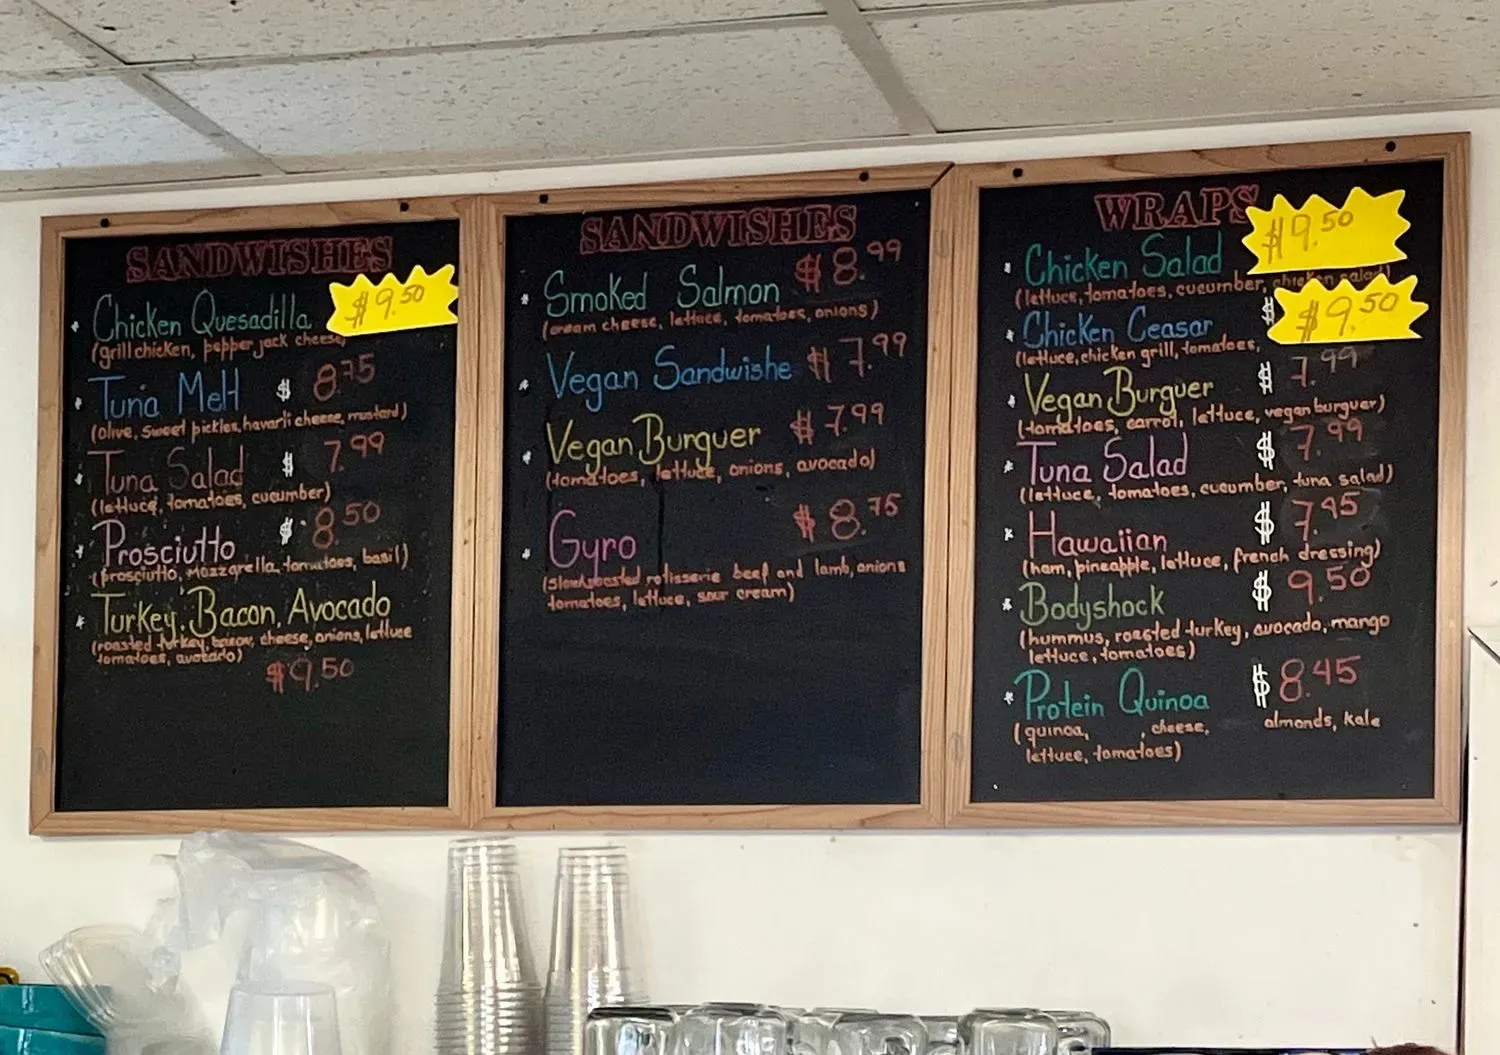 SANDWISHES
* Chicken Quesadilla $9.50
(grill chicken, pepper jack cheese
* Tuna Melt $ 8.75
(olive, sweet pickles, havarli cheese, mustard)
* Tuna Salad $ 7.99
(lettuce, tomatoes, cucumber)
* Prosciutto $ 8.50
(prosciutto, mozzarella, tomatoes, basil)
* Turkey, Bacon, Avocado
(roasted turkey, bacon, cheese, onions, lettuce
tomatoes, avocado)
$9.50
SANDWISHES
* Smoked Salmon $8.99
(cream cheese, lettuce, tomatoes, onions)
* Vegan Sandwishe $7.99
* Vegan Burguer $7.99
(tomatoes, lettuce, onions, avocado)
* Gyro $8.75
(slow roasted rotisserie beef and lamb, onions
tomatoes, lettuce, sour cream)
WRAPS
* Chicken Salad $9.50
(lettuce, tomatoes, cucumber, chicken salad)
* Chicken Ceasar $ $9.50
(lettuce, chicken grill, tomatoes,
* Vegan Burguer $ 7.99
(tomatoes, carrot, lettuce, vegan burguer)
* Tuna Salad $ 7.99
(lettuce, tomatoes, cucumber, tuna salad)
* Hawaiian $ 7.95
(ham, pineapple, lettuce, french dressing)
* Bodyshock $ 9.50
(hummus, roasted turkey, avocado, mango
lettuce, tomatoes)
* Protein Quinoa $ 8.45
(quinoa, , cheese, almonds, kale
lettuce, tomatoes)